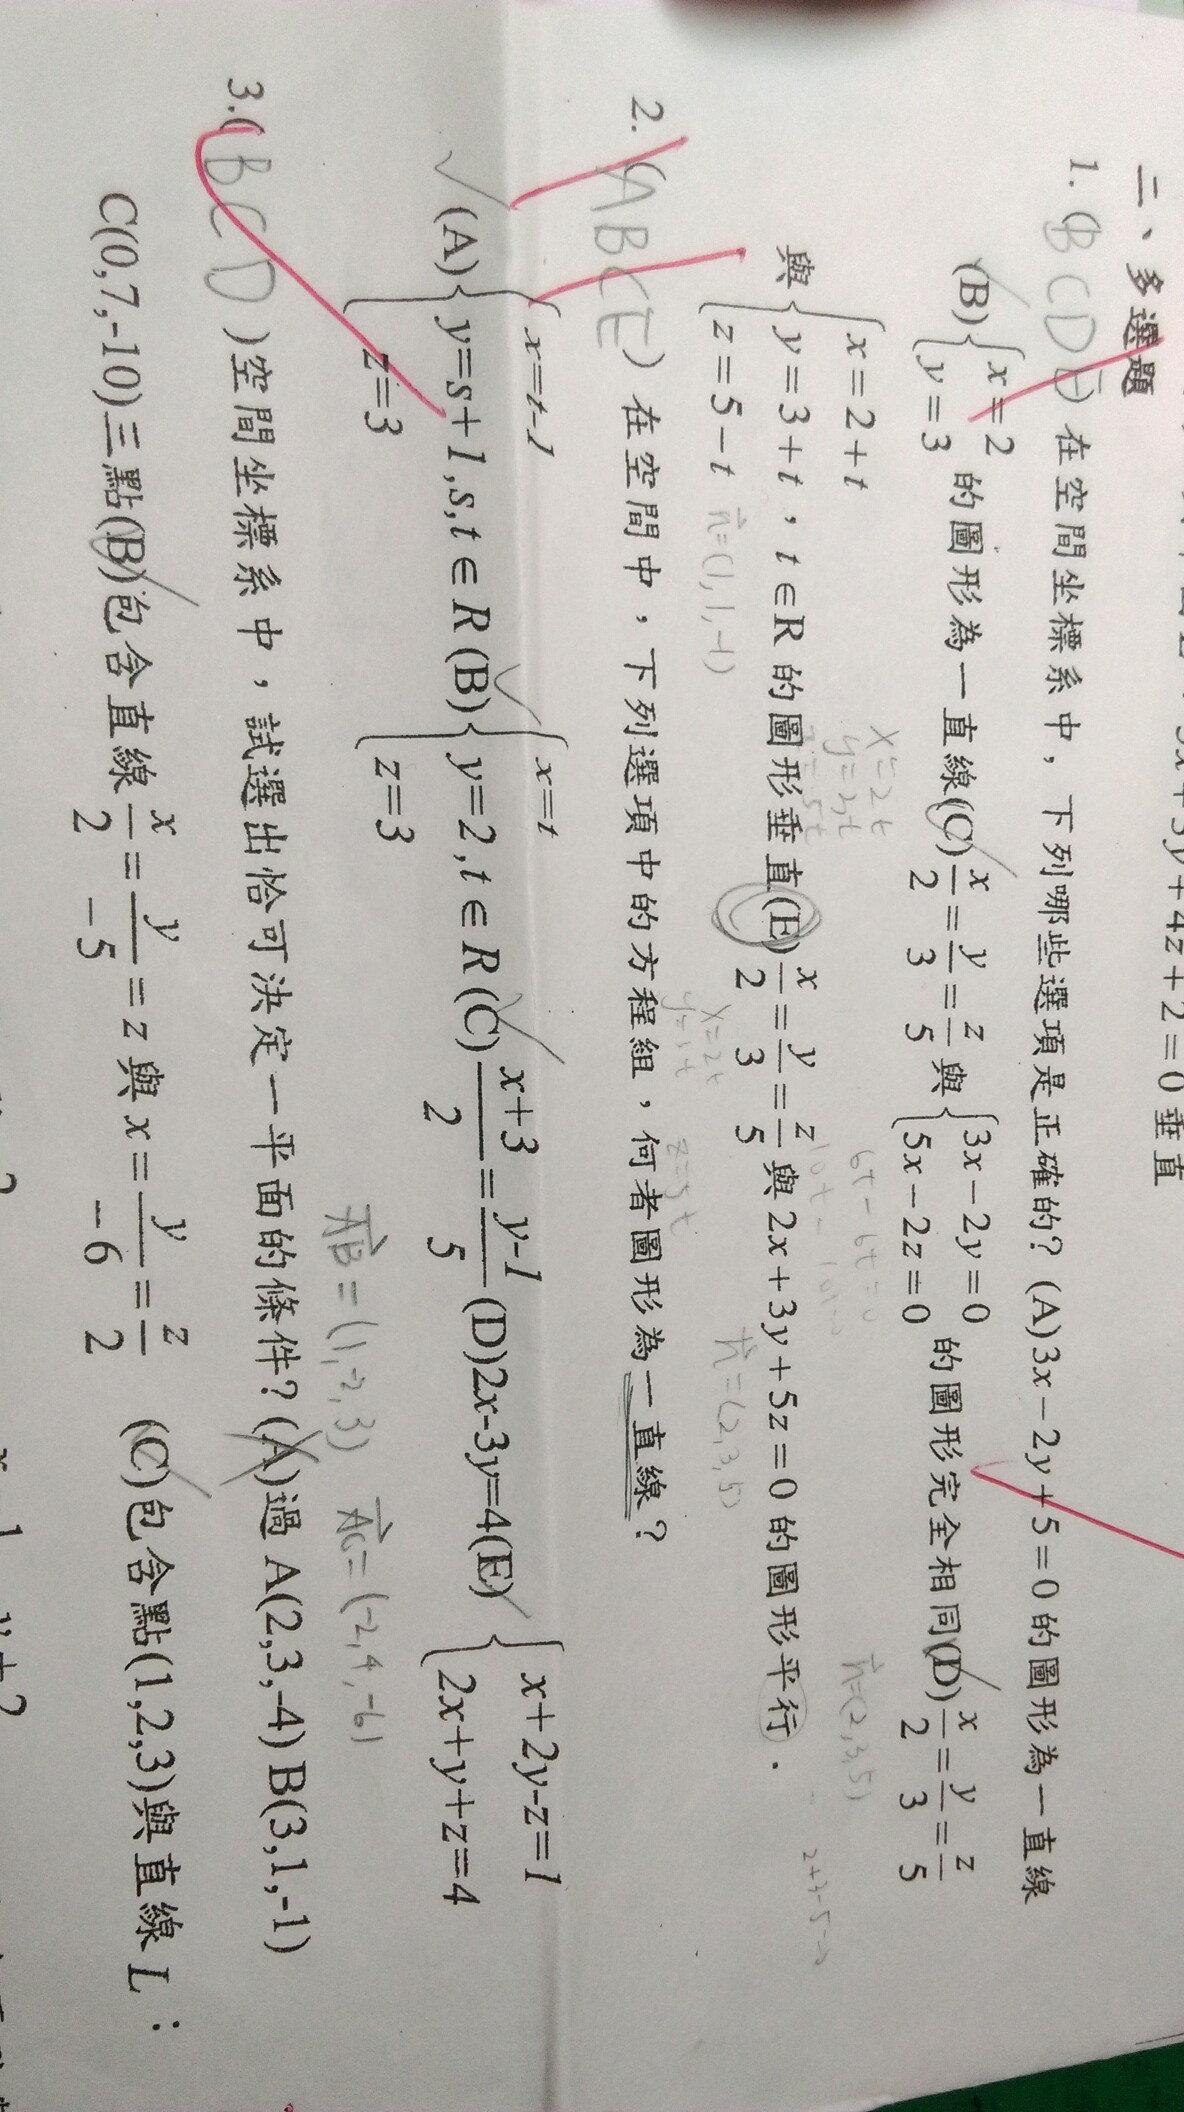 3x+3y+4z+2=0垂直
二、多選題
1.(BCDE)在空間坐標系中，下列哪些選項是正確的？(A)3x−2y+5=0的圖形為一直線
(B){x=2 y=3 的圖形為一直線(C)x/2=y/3=z/5與{3x−2y=0 5x−2z=0 的圖形完全相同(D)x/2=y/3=z/5
與{x=2+t y=3+t z=5−t，t∈R的圖形垂直(E)x/2=y/3=z/5與2x+3y+5z=0的圖形平行．
x=2t
y=3t
z=5t
6t-6t=0
n=(2,3,5)
2+3-5=0
n=(1,1,-1)
x=2t
z=5t
n=(2,3,5)
2.(ABCE)在空間中，下列選項中的方程組，何者圖形為一直線？
(A){x=t-1 y=s+1,s,t∈R z=3 (B){x=t y=2,t∈R z=3 (C)x+3/2=y-1/5(D)2x-3y=4(E){x+2y-z=1 2x+y+z=4
AB=(1,-2,3) AC=(-2,4,-6)
3.(BCD)空間坐標系中，試選出恰可決定一平面的條件？(A)過A(2,3,-4)B(3,1,-1)
C(0,7,-10)三點(B)包含直線x/2=y/−5=z與x=y/−6=z/2 (C)包含點(1,2,3)與直線L：